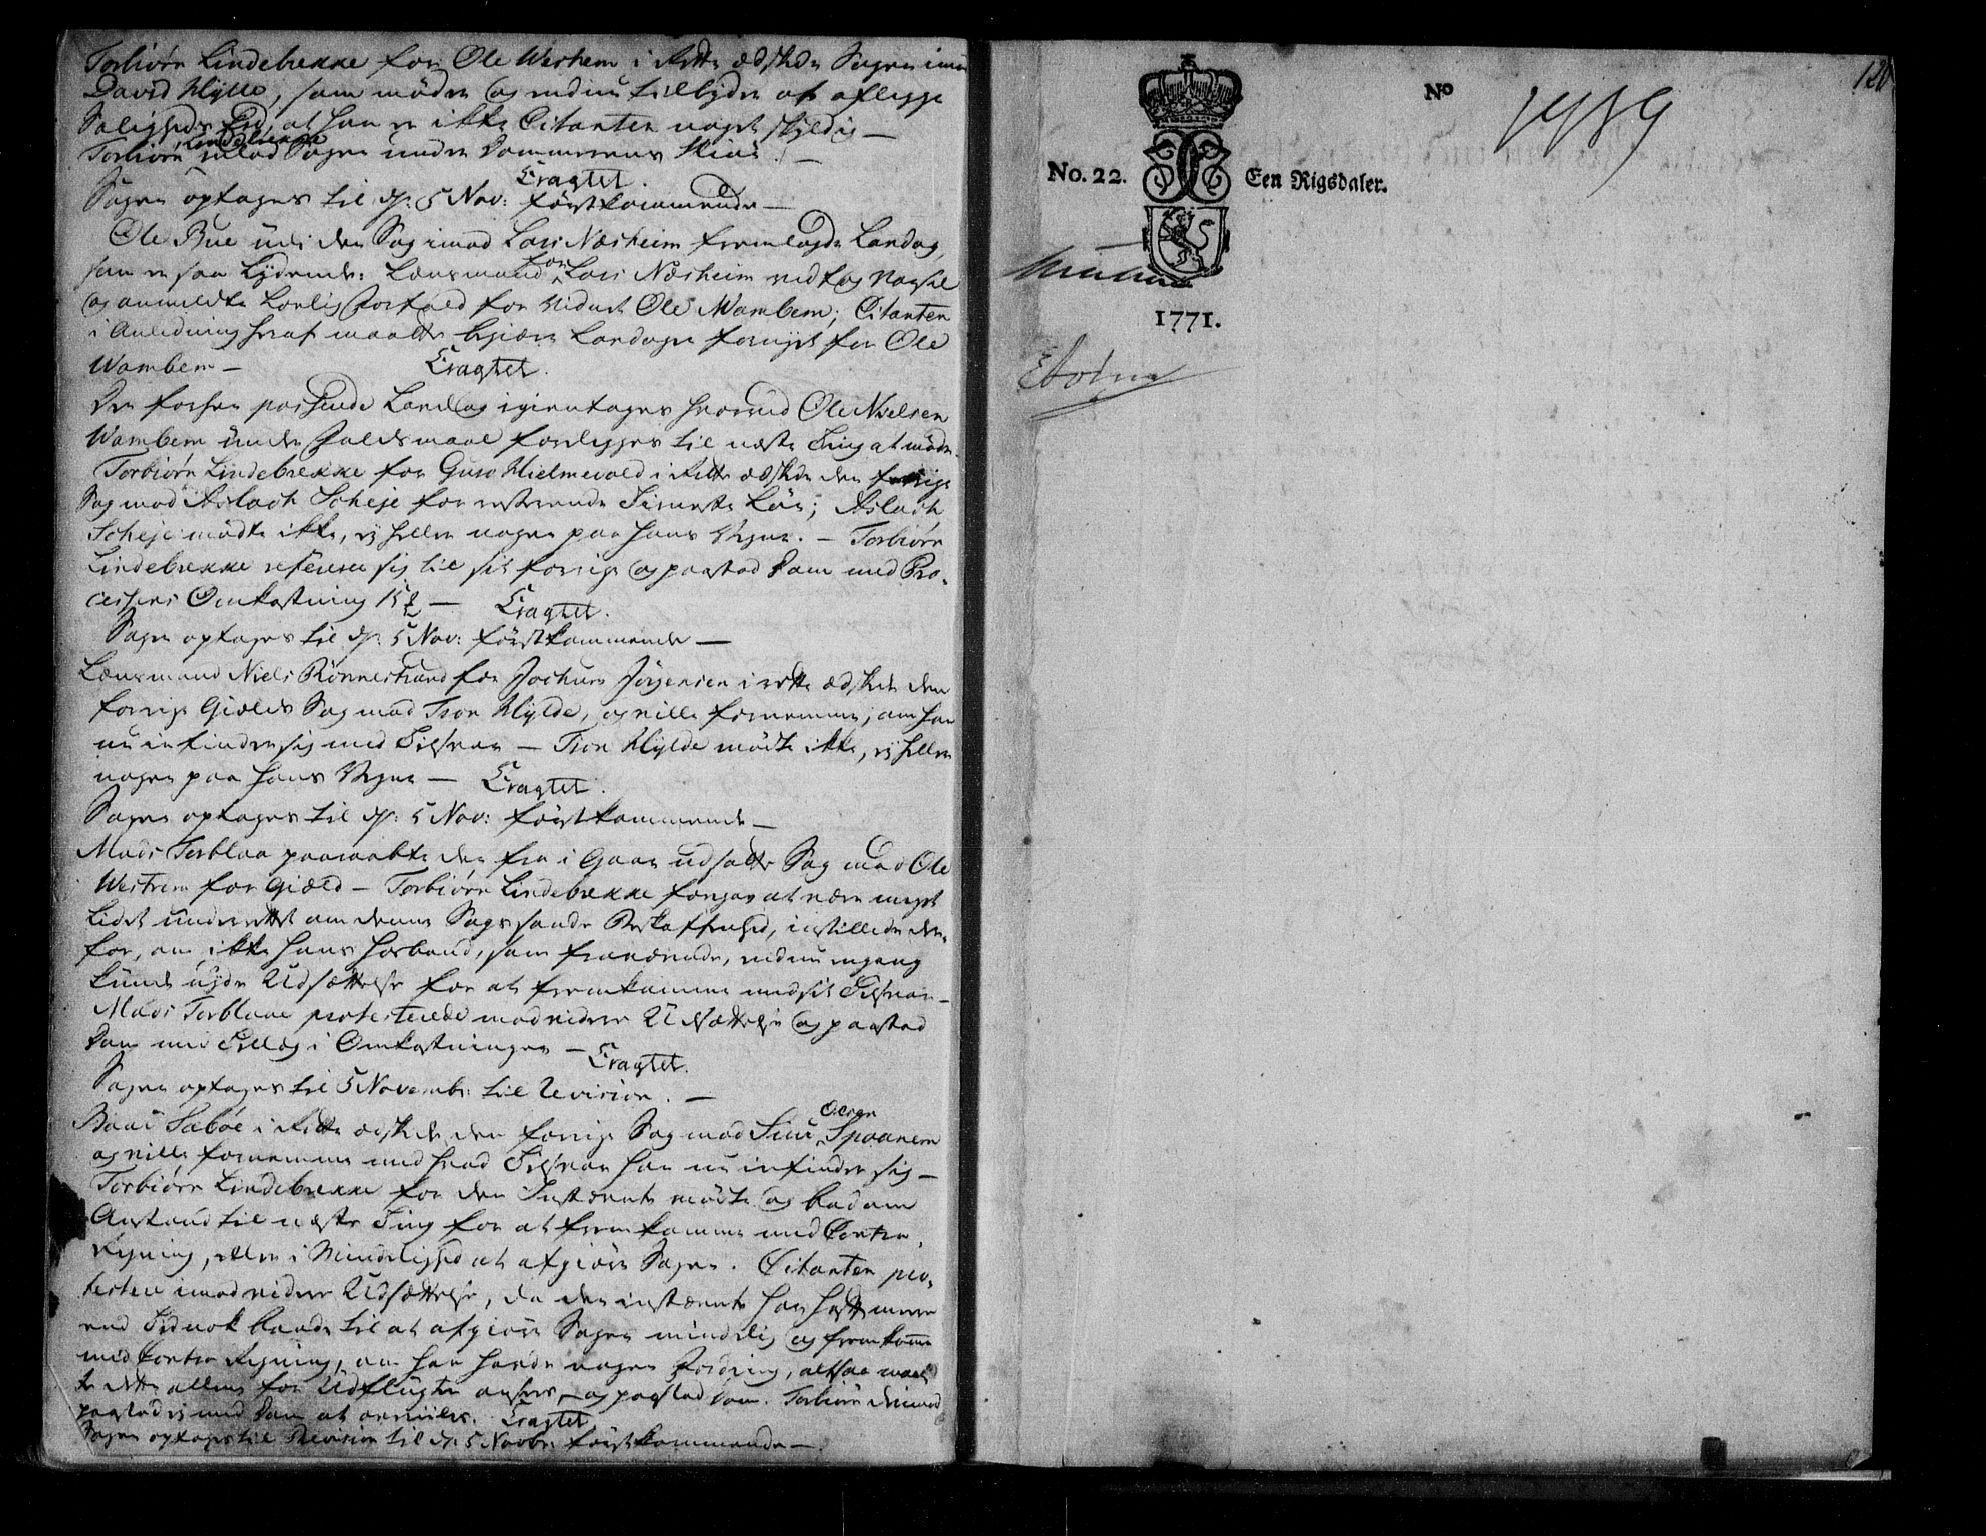 Torbiørn Lindebrekke for Ole Westrem i Rette ædskede Sagen imod
David Hylle, som mødte og endnu tilbyder at aflegge
Saligheds Eed, at han er ikke Citanten noget skyldig —
Torbiørn Lindebrekke indlod Sagen under Dommerens Skiøn. —
Eragtet.
Sagen optages til d. 5 Nov: førstkommende —
Ole Bue udi den Sag imod Lars Næsheim fremlagde Laudag,
som er saa Lydende: Lænsmand for Lars Næsheim vedtog Varsel
og anmeldte Lovlig Forfald for Vidnet Ole Wambem; Citanten
i Anledning heraf maatte begiære Laudagen fornyet for Ole
Wambem — Eragtet.
Den forhen passerede Laudag igientages hvorved Ole Nielsen
Wambem under Faldsmaal forelegges til næste Ting at møde.
Torbiørn Lindebrekke for Guro Hielmevold i Rette ædskede den forrige
Sag mod Aslach Scheje for resterende Tieneste Løn; Aslach
Scheje mødte ikke, ej heller nogen paa hans Vegne. — Torbiørn
Lindebrekke referere sig til sit forrige og paastod Dom med Pro-
cessens Omkostning — Eragtet.
Sagen optages til d. 5 Nov: førstkommende —
Lænsmand Niels Rønnestrand for Jochum Jørgensen i rette ædskede den
forrige Giælds Sag mod Tron Hylde, og ville fornemme, om han
nu indfinder sig med Tilsvar — Tron Hylde mødte ikke, ej heller
nogen paa hans Vegne — Eragtet.
Sagen optages til d. 5 Nov: førstkommende —
Mads Torblaa paaraabte den fra i Gaar udsatte Sag mod Ole
Westrem for Giæld — Torbiørn Lindebrekke foregav at være meget
Lidet underrettet om denne Sags sande Beskaffenhed, instillede der-
for, om ikke hans Hosbond, som fraværende, endnu engang
kunde nyde Udsættelse for at fremkomme med sit Tilsvar —
Mads Torblaae protesterede mod videre Udsættelse og paastod
Dom med Tillæg i Omkostninger — Eragtet.
Sagen optages til 5 Novembr: til Revision. —
Baar Sæbøe i Rette ædskede den forrige Sag mod Siur Olsen Spaanem
og ville fornemme med hvad Tilsvar han nu indfinder sig —
Torbiørn Lindebrekke for den Instævnte mødte og bad om
Anstand til næste Ting for at fremkomme med Contra-
Regning, eller i Mindelighed at afgiøre Sagen. Citanten pro-
testere imod videre Udsættelse, da den instævnte har haft meere
end Tid nok baade til at afgiøre Sagen mindelig og fremkomme
med Contra Regning, om han havde nogen Fordring, altsaa maat-
te dette allene for Udflugter ansees, og paastod Dom. Torbiørn derimod
paastod ej med Dom at overiiles. Eragtet
Sagen optages til Revision til d. 5 Novbr: førstkommende —.
120
No
1989
No. 22.
Een Rigsdaler.
1771.